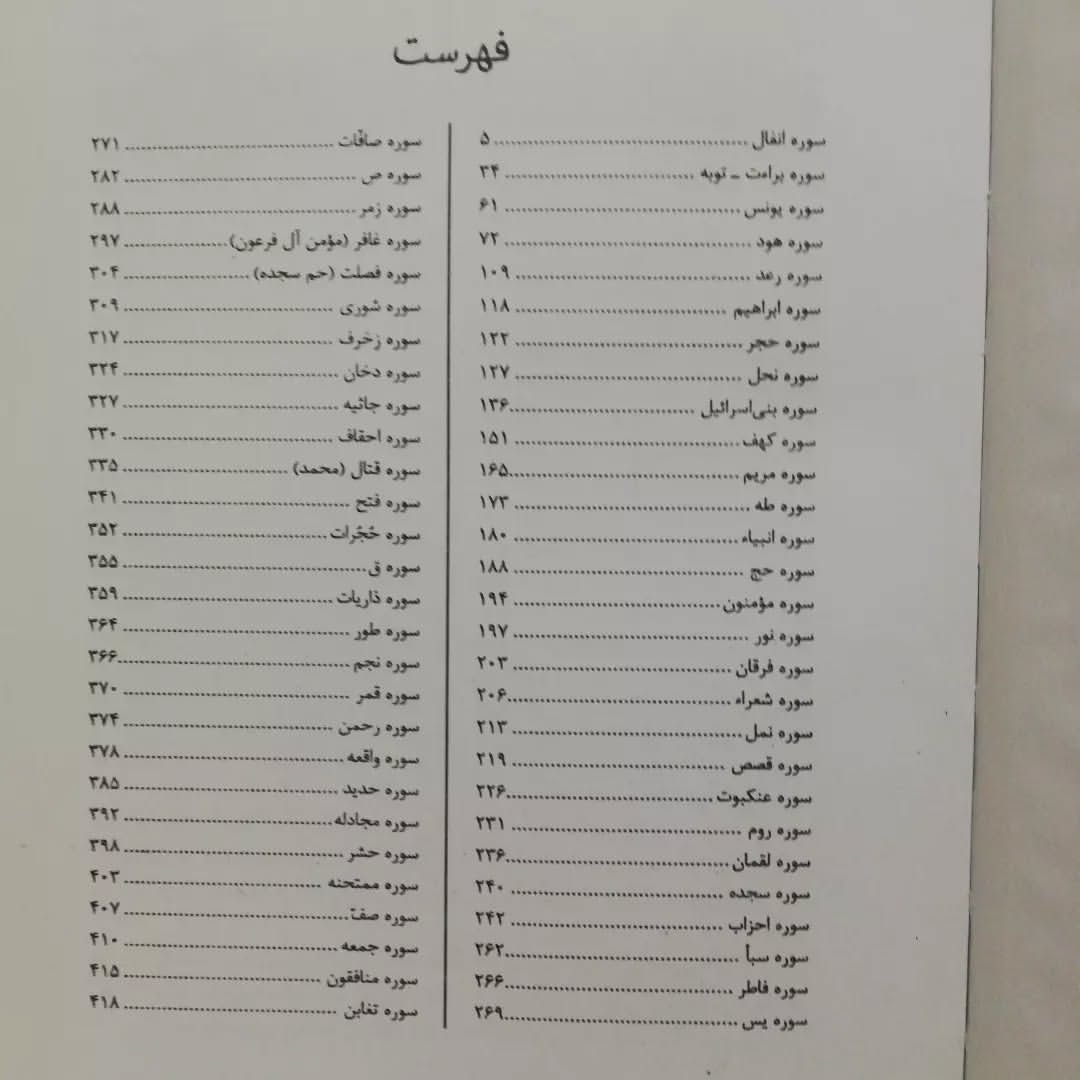 فهرست
سوره انفال ........................................... ۵
سوره براءت ـ توبه ................................ ۳۴
سوره یونس ........................................ ۶۱
سوره هود .......................................... ۷۲
سوره رعد ....................................... ۱۰۹
سوره ابراهیم .................................... ۱۱۸
سوره حجر ...................................... ۱۲۲
سوره نحل ...................................... ۱۲۷
سوره بنی‌اسرائیل ............................... ۱۳۶
سوره کهف ...................................... ۱۵۱
سوره مریم ....................................... ۱۶۵
سوره طه ........................................ ۱۷۳
سوره انبیاء ...................................... ۱۸۰
سوره حج ....................................... ۱۸۸
سوره مؤمنون ................................... ۱۹۴
سوره نور ........................................ ۱۹۷
سوره فرقان ..................................... ۲۰۳
سوره شعراء ...................................... ۲۰۶
سوره نمل ....................................... ۲۱۳
سوره قصص .................................... ۲۱۹
سوره عنکبوت ................................... ۲۲۶
سوره روم ....................................... ۲۳۱
سوره لقمان ...................................... ۲۳۶
سوره سجده .................................... ۲۴۰
سوره احزاب .................................... ۲۴۲
سوره سبأ ........................................ ۲۶۲
سوره فاطر ....................................... ۲۶۶
سوره یس ........................................ ۲۶۹
سوره صافّات ................................... ۲۷۱
سوره ص ....................................... ۲۸۲
سوره زمر ....................................... ۲۸۸
سوره غافر (مؤمن آل فرعون) .................. ۲۹۷
سوره فصلت (حم سجده) ..................... ۳۰۴
سوره شوری ................................... ۳۰۹
سوره زخرف ................................... ۳۱۷
سوره دخان .................................... ۳۲۴
سوره جاثیه .................................... ۳۲۷
سوره احقاف ................................... ۳۳۰
سوره قتال (محمد) ............................ ۳۳۵
سوره فتح ...................................... ۳۴۱
سوره حُجُرات .................................. ۳۵۲
سوره ق ........................................ ۳۵۵
سوره ذاریات ................................... ۳۵۹
سوره طور ...................................... ۳۶۴
سوره نجم ...................................... ۳۶۶
سوره قمر ...................................... ۳۷۰
سوره رحمن ................................... ۳۷۴
سوره واقعه .................................... ۳۷۸
سوره حدید .................................... ۳۸۵
سوره مجادله ................................... ۳۹۲
سوره حشر ..................................... ۳۹۸
سوره ممتحنه .................................. ۴۰۳
سوره صفّ ...................................... ۴۰۷
سوره جمعه .................................... ۴۱۰
سوره منافقون ................................. ۴۱۵
سوره تغابن .................................... ۴۱۸